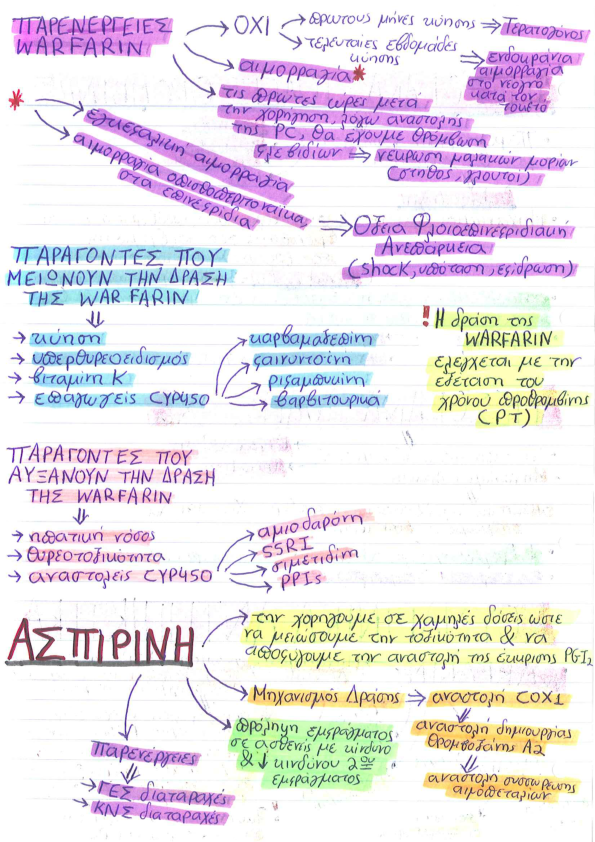 ΠΑΡΕΝΕΡΓΕΙΕΣ
WARFARIN
ΟΧΙ
πρώτους μήνες κύησης ⇒ Τερατογόνος
τελευταίες εβδομάδες
κύησης
⇒ ενδοκράνια
αιμορραγία
στο νεογνό
κατά τον
τοκετό
αιμορραγία *
τις πρώτες ώρες μετά
την χορήγηση, λόγω αναστολής
της PC, θα έχουμε θρόμβωση
φλεβιδίων ⇒ νέκρωση μαλακών μορίων
(στήθος, γλουτοί)
*
εγκεφαλική αιμορραγία
αιμορραγία οπισθοπεριτοναϊκά,
στα επινεφρίδια
⇒ Οξεία Φλοιοεπινεφριδιακή
Ανεπάρκεια
(shock, υπόταση, εφίδρωση)
ΠΑΡΑΓΟΝΤΕΣ ΠΟΥ
ΜΕΙΩΝΟΥΝ ΤΗΝ ΔΡΑΣΗ
ΤΗΣ WARFARIN
⇓
→ κύηση
→ υπερθυρεοειδισμός
→ βιταμίνη Κ
→ επαγωγείς CYP450
καρβαμαζεπίνη
φαινυτοΐνη
ριφαμπικίνη
βαρβιτουρικά
! Η δράση της
WARFARIN
ελέγχεται με την
εξέταση του
χρόνου προθρομβίνης
(PT)
ΠΑΡΑΓΟΝΤΕΣ ΠΟΥ
ΑΥΞΑΝΟΥΝ ΤΗΝ ΔΡΑΣΗ
ΤΗΣ WARFARIN
⇓
→ ηπατική νόσος
→ θυρεοτοξικότητα
→ αναστολείς CYP450
αμιοδαρόνη
SSRI
σιμετιδίνη
PPIs
ΑΣΠΙΡΙΝΗ
την χορηγούμε σε χαμηλές δόσεις ώστε
να μειώσουμε την τοξικότητα & να
αποφύγουμε την αναστολή της έκκρισης PGI₂
Μηχανισμός Δράσης ⇒ αναστολή COX1
⇓
αναστολή δημιουργίας
Θρομβοξάνης Α2
⇓
αναστολή συσσώρευσης
αιμοπεταλίων
πρόληψη εμφράγματος
σε ασθενείς με κίνδυνο
& ↓ κινδύνου 2ου
εμφράγματος
Παρενέργειες
⇓
→ ΓΕΣ διαταραχές
→ ΚΝΣ διαταραχές